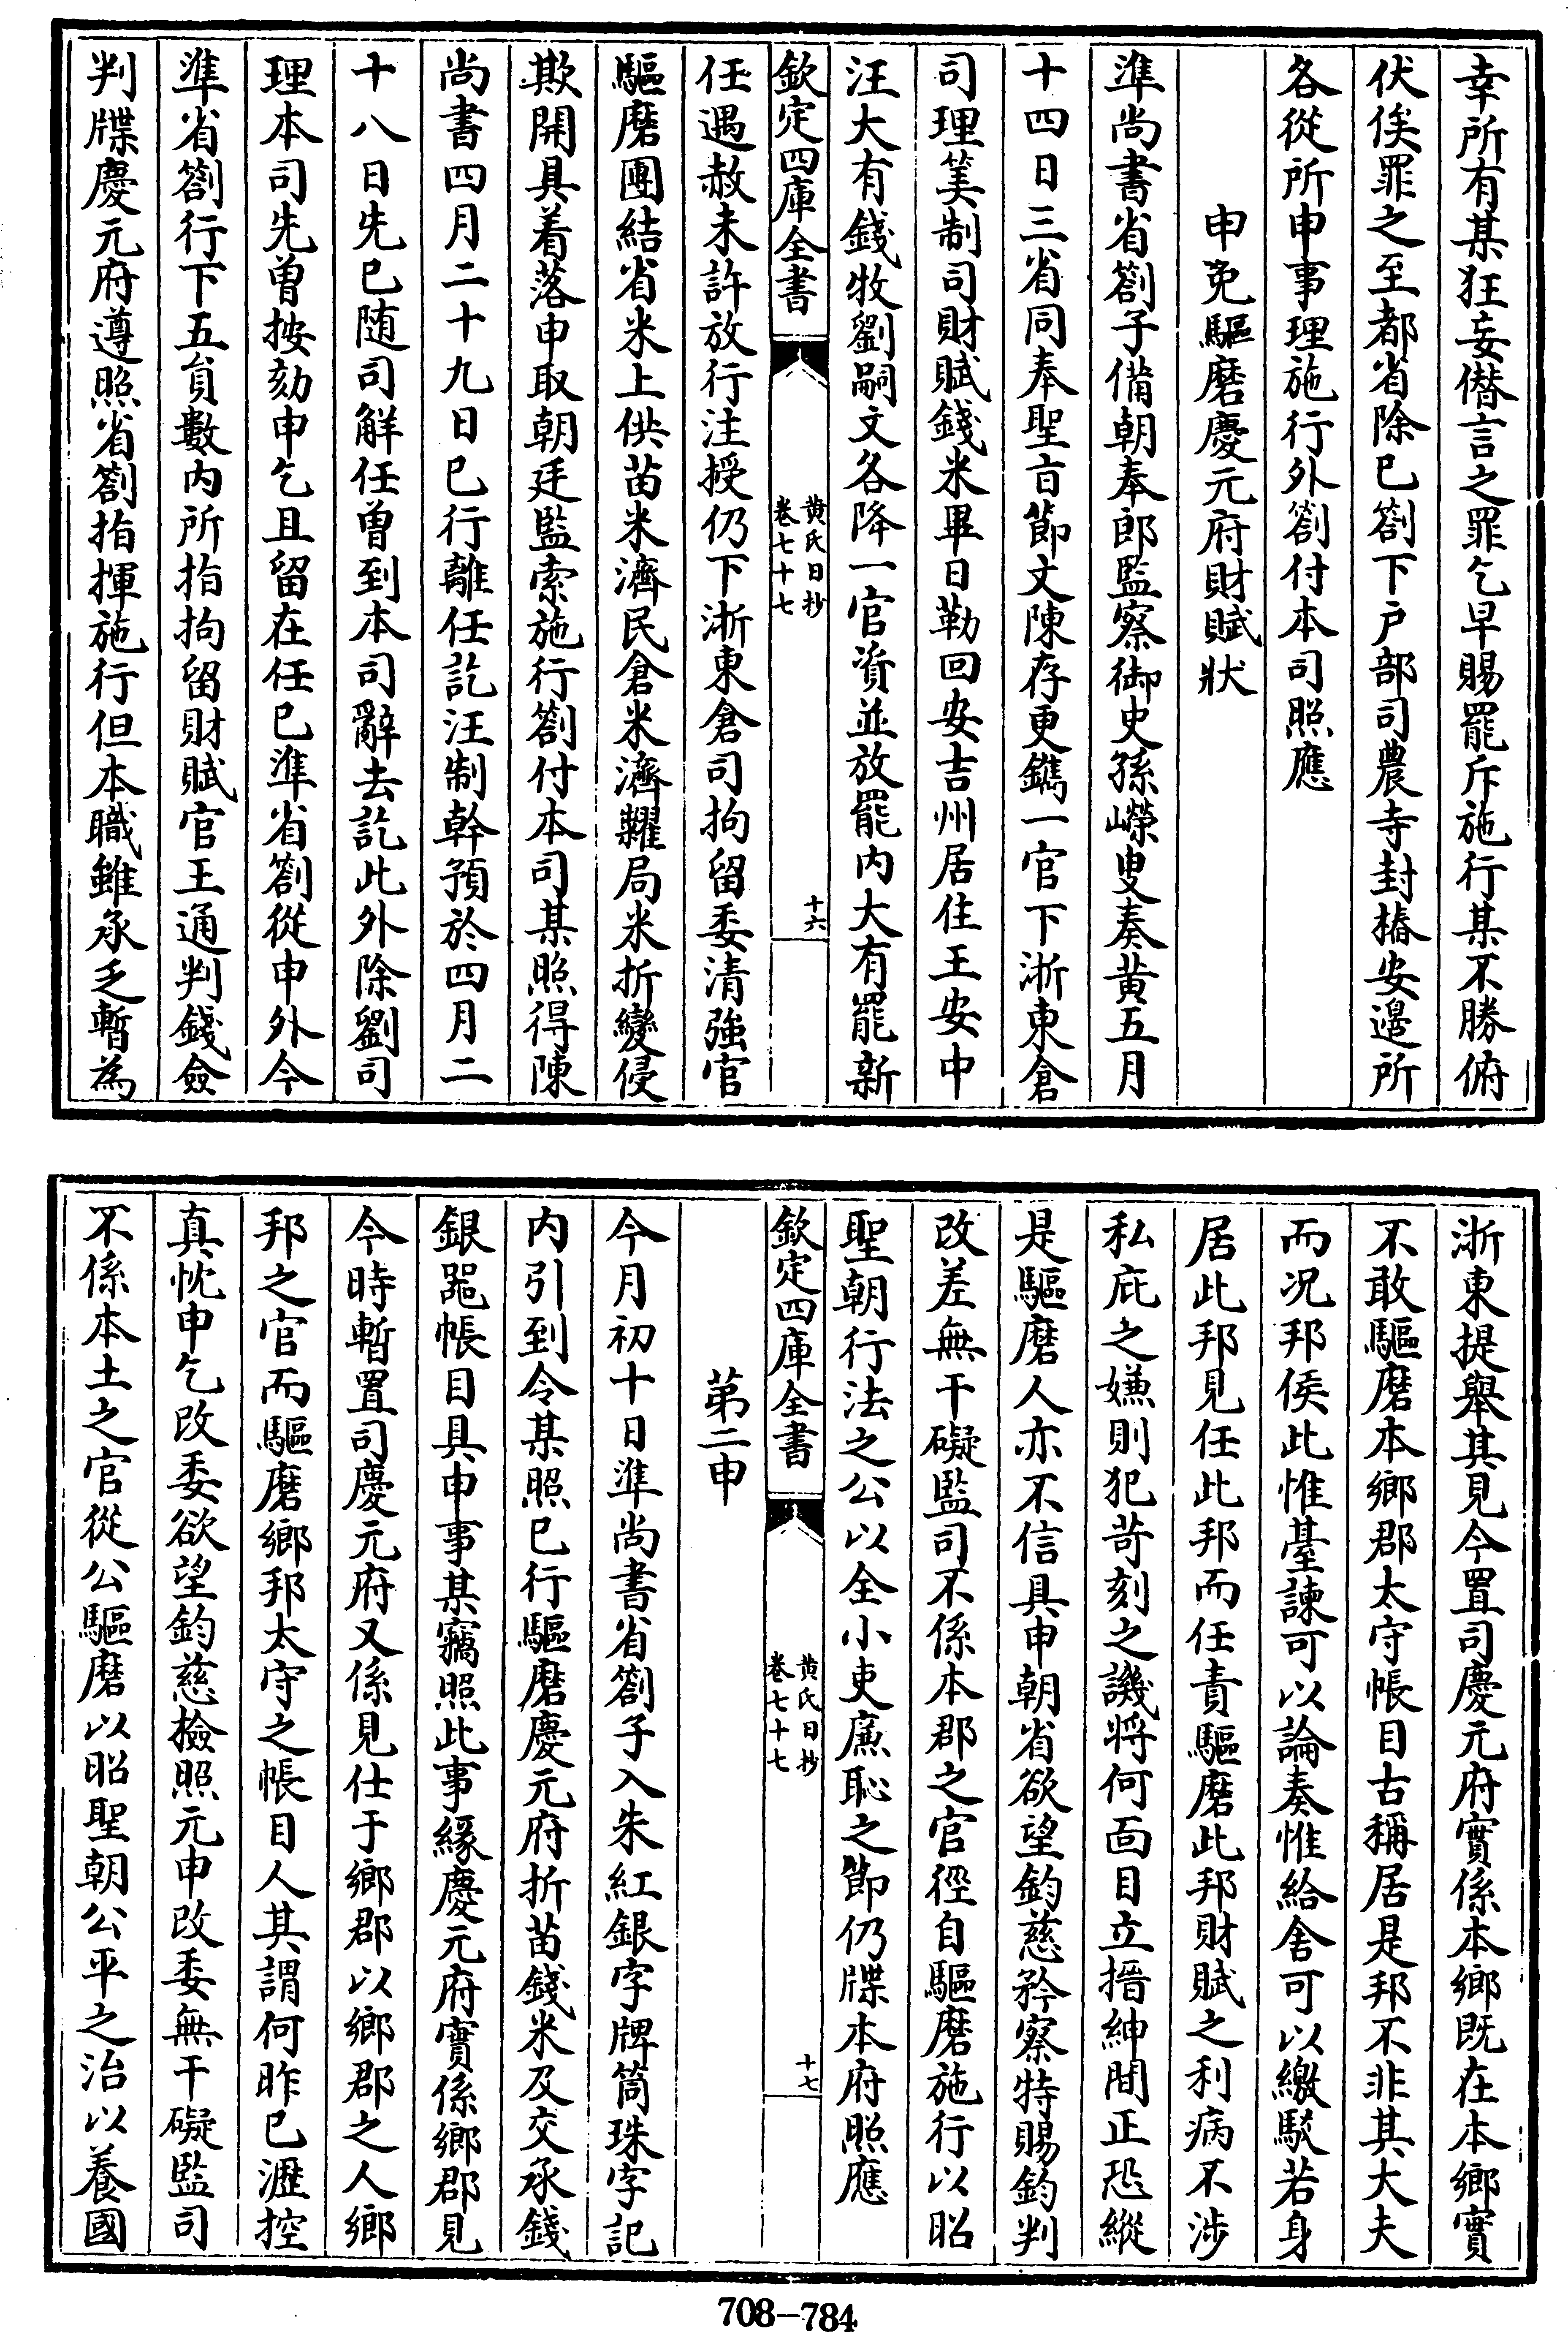 幸所有某狂妄僭言之罪乞早賜罷斥施行某不勝俯
伏俟罪之至都省除已劄下户部司農寺封樁安邊所
各從所申事理施行外劄付本司照應
申免驅磨慶元府財賦狀
準尚書省劄子備朝奉郎監察御史孫嶸叟奏黄五月
十四日三省同奉聖㫖節文陳存更鐫一官下浙東倉
司理筭制司財賦錢米畢日勒回安吉州居住王安中
汪大有錢牧劉嗣文各降一官資並放罷内大有罷新
欽定四庫全書
黄氏日抄
卷七十七
十六
任遇赦未許放行注授仍下浙東倉司拘留委清強官
驅磨團結省米上供苗米濟民倉米濟糶局米折變侵
欺開具着落申取朝廷監索施行劄付本司某照得陳
尚書四月二十九日已行離任訖汪制幹預於四月二
十八日先已随司解任曾到本司辭去訖此外除劉司
理本司先曾按劾申乞且留在任已準省劄從申外今
準省劄行下五員數内所指拘留財賦官王通判錢僉
判牒慶元府遵照省劄指揮施行但本職雖承乏暫為
浙東提舉其見今置司慶元府實係本鄉既在本鄉實
不敢驅磨本鄉郡太守帳目古稱居是邦不非其大夫
而况邦侯此惟臺諫可以論奏惟給舍可以繳駁若身
居此邦見任此邦而任責驅磨此邦財賦之利病不涉
私庇之嫌則犯苛刻之譏将何面目立搢紳間正恐縱
是驅磨人亦不信具申朝省欲望鈞慈矜察特賜鈞判
改差無干礙監司不係本郡之官徑自驅磨施行以昭
聖朝行法之公以全小吏廉恥之節仍牒本府照應
欽定四庫全書
黄氏日抄
卷七十七
十七
第二申
今月初十日準尚書省劄子入朱紅銀字牌筒珠字記
内引到令某照已行驅磨慶元府折苗錢米及交承錢
銀噐帳目具申事某竊照此事緣慶元府實係鄉郡見
今時暫置司慶元府又係見仕于鄉郡以鄉郡之人鄉
邦之官而驅磨鄉邦太守之帳目人其謂何昨已瀝控
真忱申乞改委欲望鈞慈檢照元申改委無干礙監司
不係本土之官從公驅磨以昭聖朝公平之治以養國
708-784